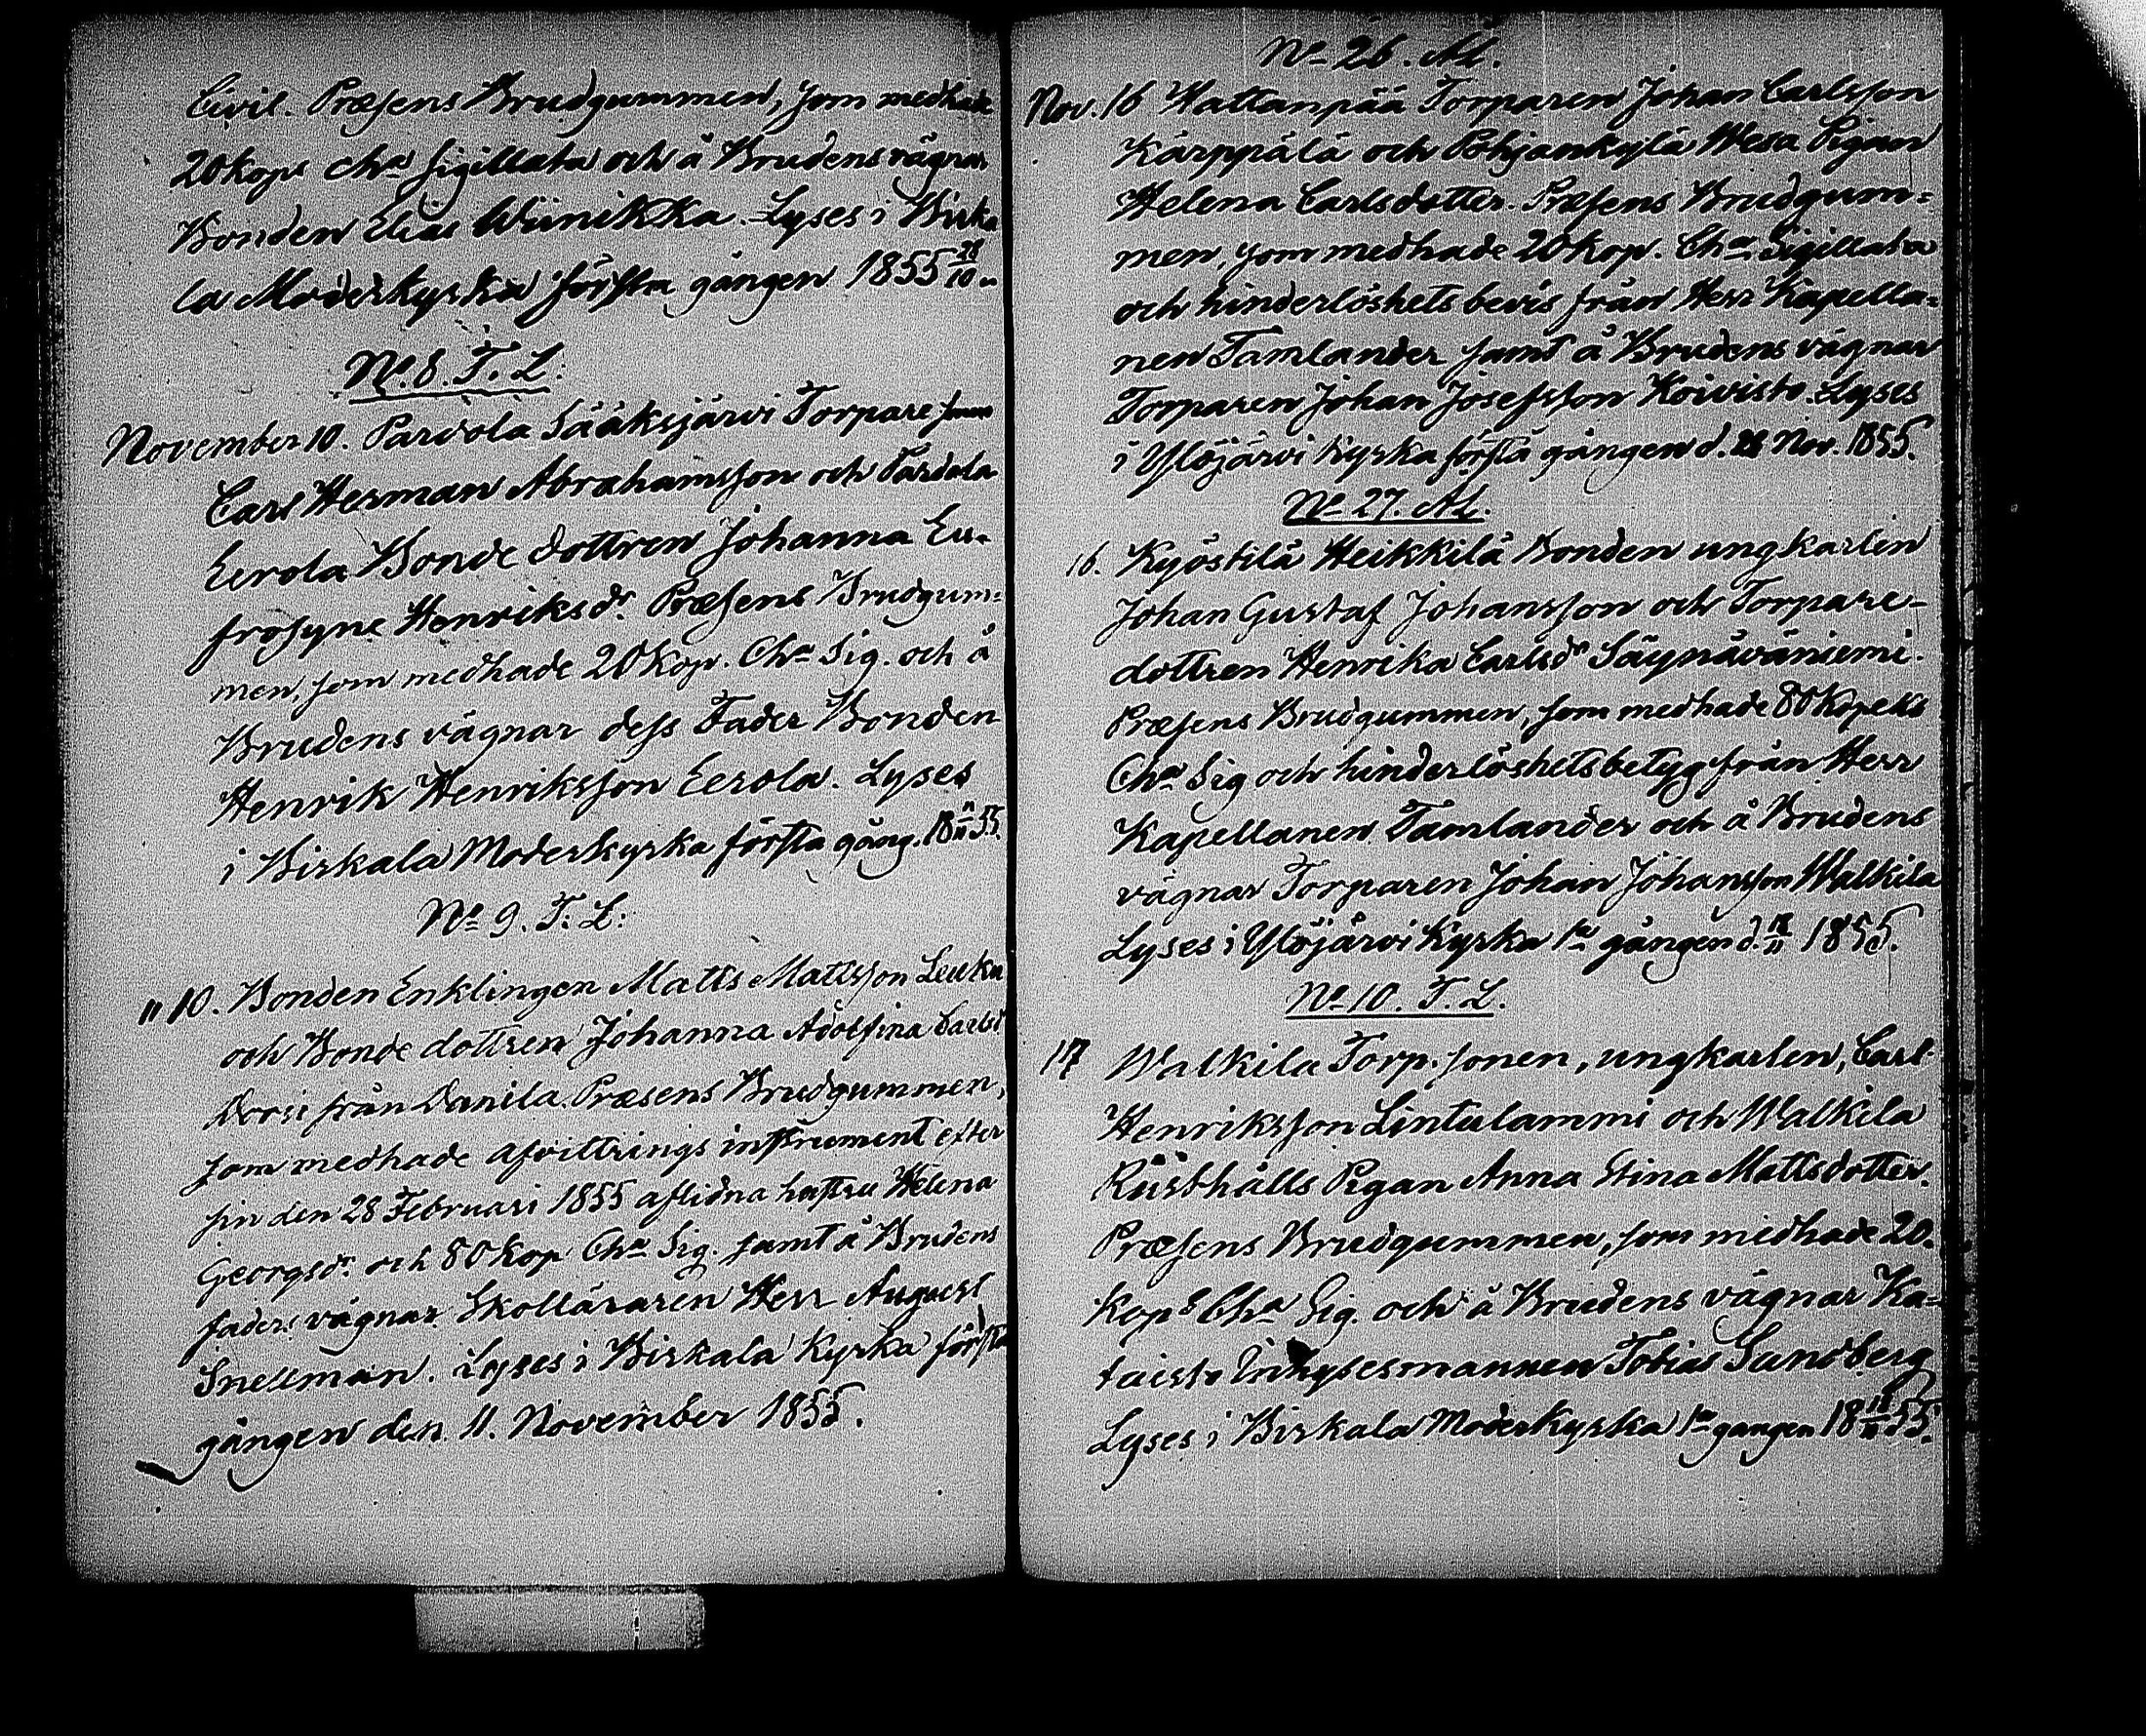 Civil. Præsens Brudgummen, som medhade
20 kops Cha sigillata och å Brudens vägnar
Bonden Elias Winikka. Lyses i Birka
la Moderkyrka första gången 1855 28/10
No. 8. T. L.
November 10. Parvola Sääksjärvi Torpare
Carl Herman Abrahamsson och Pardola
Eerola Bonde dottren Johanna Eu-
frosyne Henriksdr. Præsens Brudgum-
men, som medhade 20 Kop. Cha Sig. och å
Brudens vägnar dess Fader Bonden
Henrik Henriksson Eerola. Lyses
i Birkala Moderkyrka första gång. 18 11/11 55.
No 9. T. L:
" 10. Bonden Enklingen Matts Mattsson Leuku
och Bonde dottren Johanna Adolfina Carlsd
från Danila. Præsens Brudgummen,
som medhade afvittrings instrument efter
sin den 28 Februari 1855 aflidna hustru Helena
Georgsdr. och 80 kop Cha Sig. samt å Brudens
faders vägnar Skolläraren Herr August
Snellman. Lyses i Birkala Kyrka första
gången den 11. November 1855.
No 26. Al.
Nov. 16 Hattanpää Torparen Johan Carlsson
Kärppälä och Pohjankylä Wesa Pigan
Helena Carlsdotter. Præsens Brudgum=
men, som medhade 20 kop. Cha Sigillata
och hinderlöshets bevis från Herr Kapella=
nen Tamlander samt å Brudens vägnar
Torparen Johan Josefsson Koivisto. Lyses
i Ylöjärvi Kyrka första gången d. Nov. 1855.
No 27. Al.
16. Kyöstilä Heikkilä Bonden ungkarlen
Johan Gustaf Johansson och Torpare-
dottren Henrika Carlsdr Säynäväniemi.
Præsens Brudgummen, som medhade 80 Kopeks
Cha Sig och hinderlöshetsbetyg från Herr
Kapellanen Tamlander och å Brudens
vägnar Torparen Johan Johansson Walkila
Lyses i Ylöjärvi Kyrka 1a gången d. 18/11 1855.
No 10. T. L.
17 Walkila Torp. sonen, ungkarlen, Carl
Henriksson Lintulammi och Walkila
Rusthålls Pigan Anna Stina Mattsdotter.
Præsens Brudgummen, som medhade 20.
Kops Cha Sig. och å Brudens vägnar Ka=
taisto Inhysesmannen Tobias Sandberg
Lyses i Birkala Moderkyrka 1a gången 18 18/11 55.